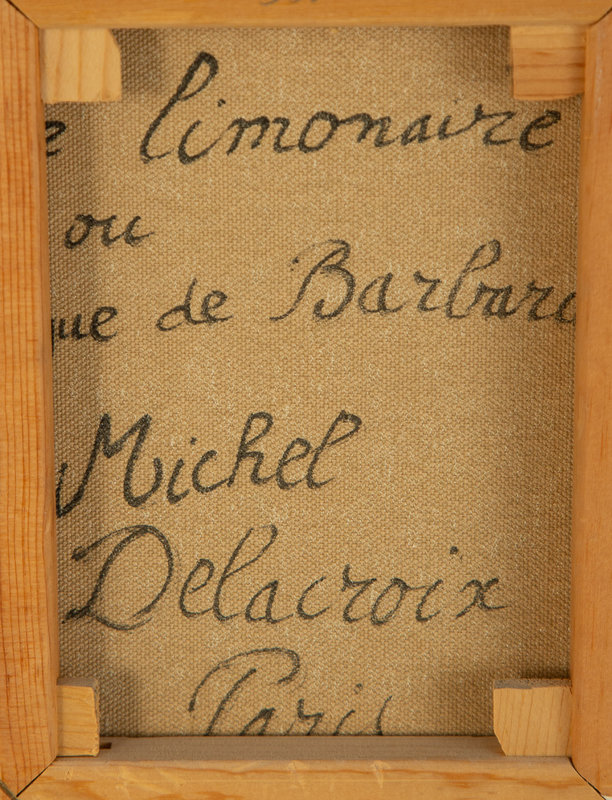 e limonaire
ou
ue de Barbara
Michel
Delacroix
Paris